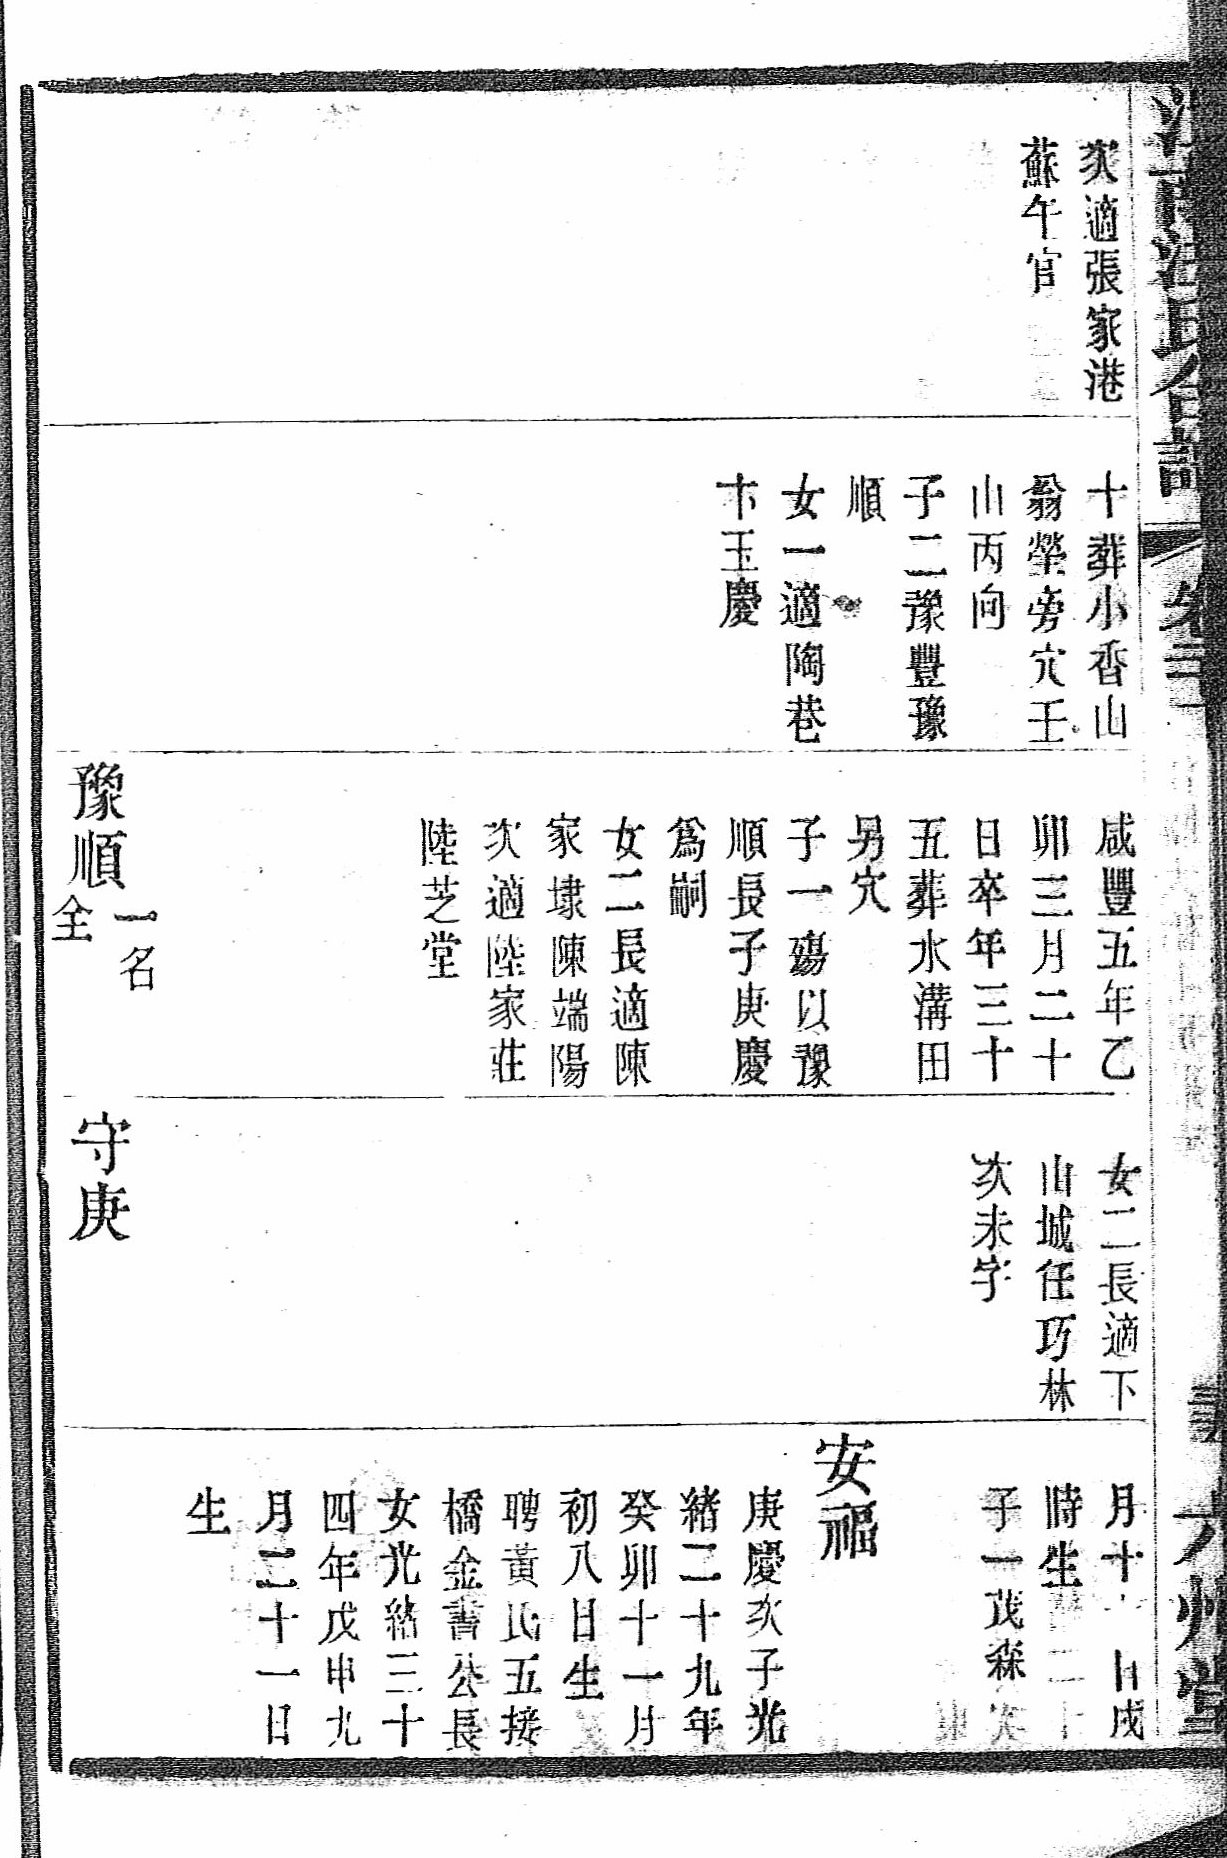 次適張家港
蘇午官
十葬小香山
翁塋旁穴壬
山丙向
子二豫豐豫
順
女一適陶巷
卞玉慶
咸豐五年乙
卯三月二十
日卒年三十
五葬水溝田
另穴
子一殤以豫
順長子庚慶
爲嗣
女二長適陳
家埭陳端陽
次適陸家莊
陸芝堂
豫順
一名
全
女二長適下
山城任巧林
次未字
守庚
月十 日戌
時生
子一茂森
安福
庚慶次子光
緒二十九年
癸卯十一月
初八日生
聘黃氏五接
橋金書公長
女光緒三十
四年戊申九
月二十一日
生
氏合譜
卷二
六州堂